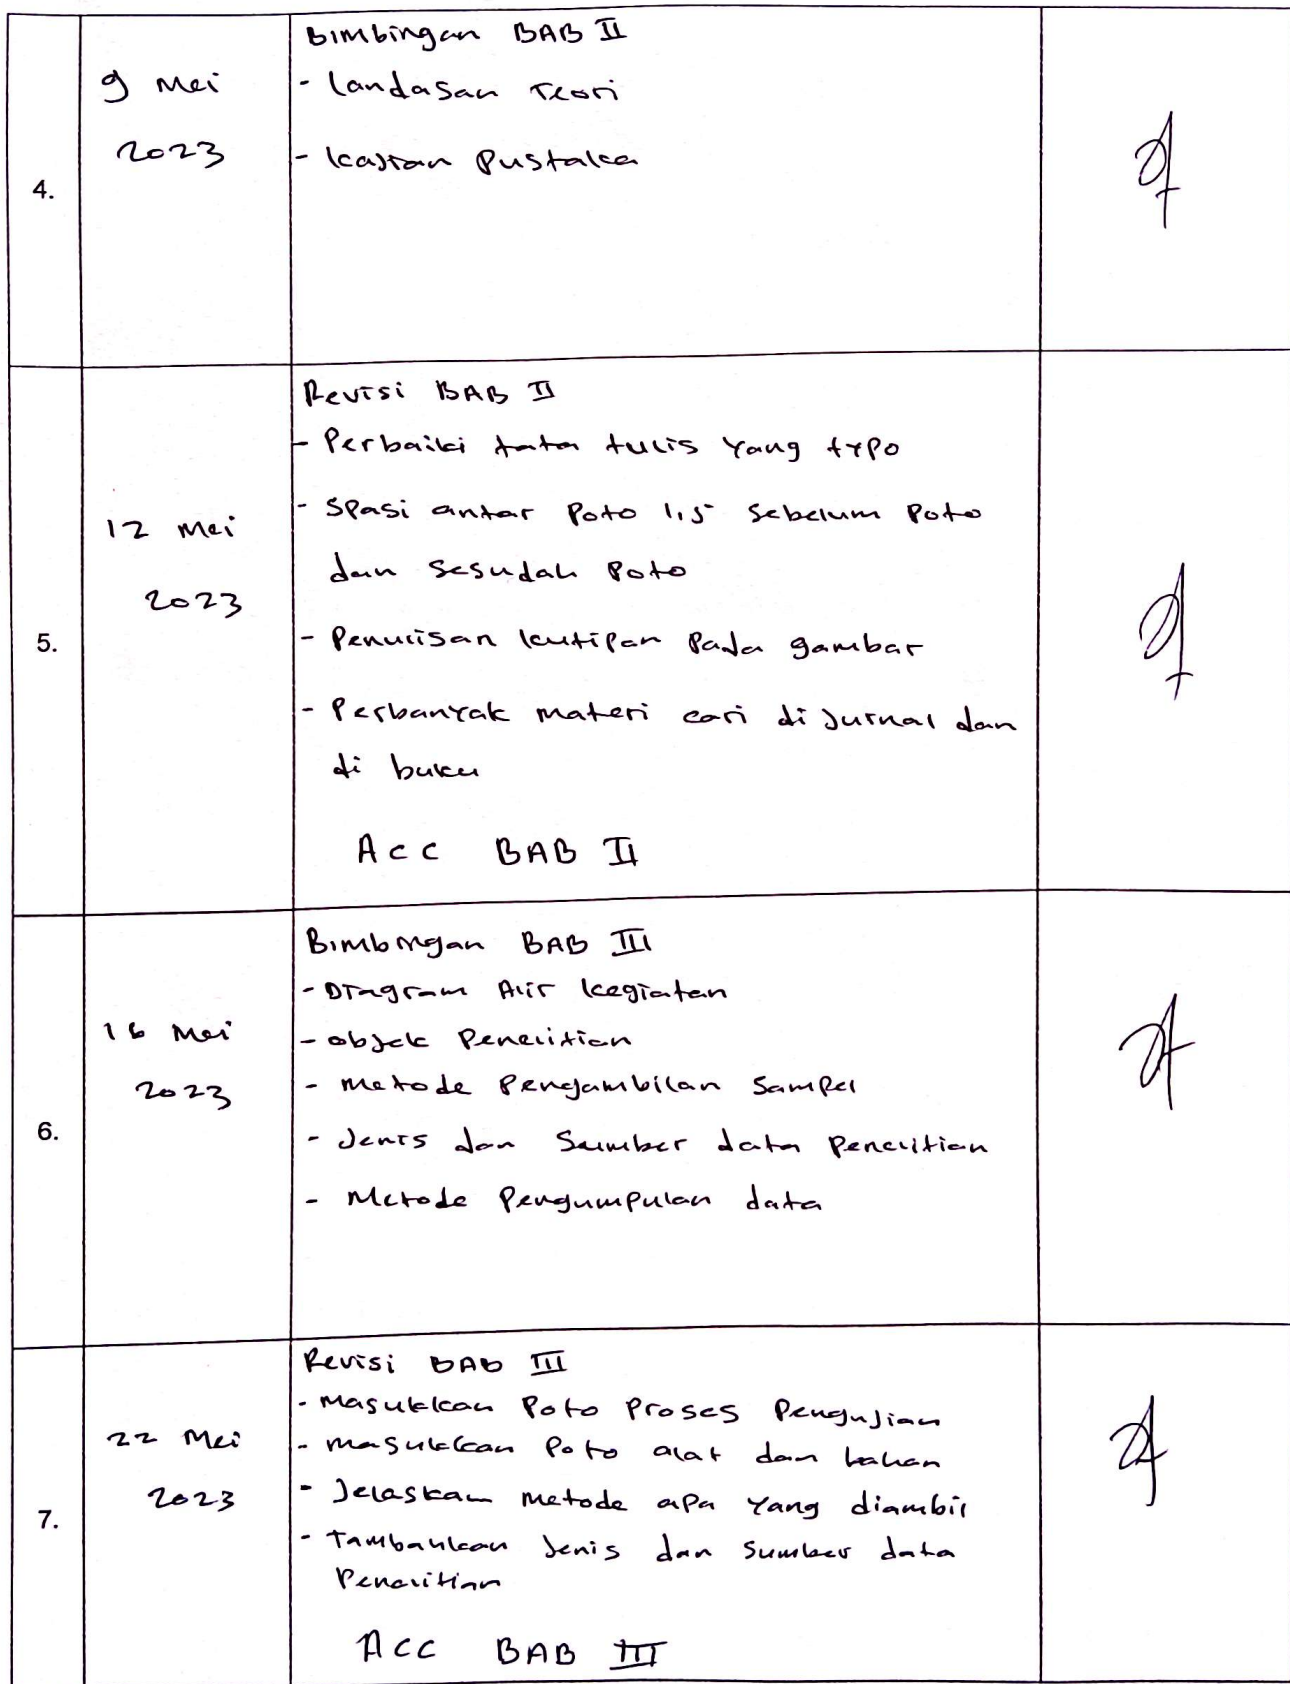 4.
9 Mei
2023
Bimbingan BAB II
- Landasan Teori
- Kajian Pustaka
5.
12 Mei
2023
Revisi BAB II
- Perbaiki tata tulis yang typo
- Spasi antar Poto 1,5 sebelum Poto
dan sesudah Poto
- Penulisan kutipan pada gambar
- Perbanyak materi cari di Jurnal dan
di buku
Acc BAB II
6.
16 Mei
2023
Bimbingan BAB III
- Diagram Alir kegiatan
- objek Penelitian
- Metode Pengambilan Sampel
- Jenis dan Sumber data Penelitian
- Metode Pengumpulan data
7.
22 Mei
2023
Revisi BAB III
- Masukkan Poto Proses Pengujian
- Masukkan Poto alat dan bahan
- Jelaskan metode apa yang diambil
- Tambahkan Jenis dan Sumber data
Penelitian
ACC BAB III